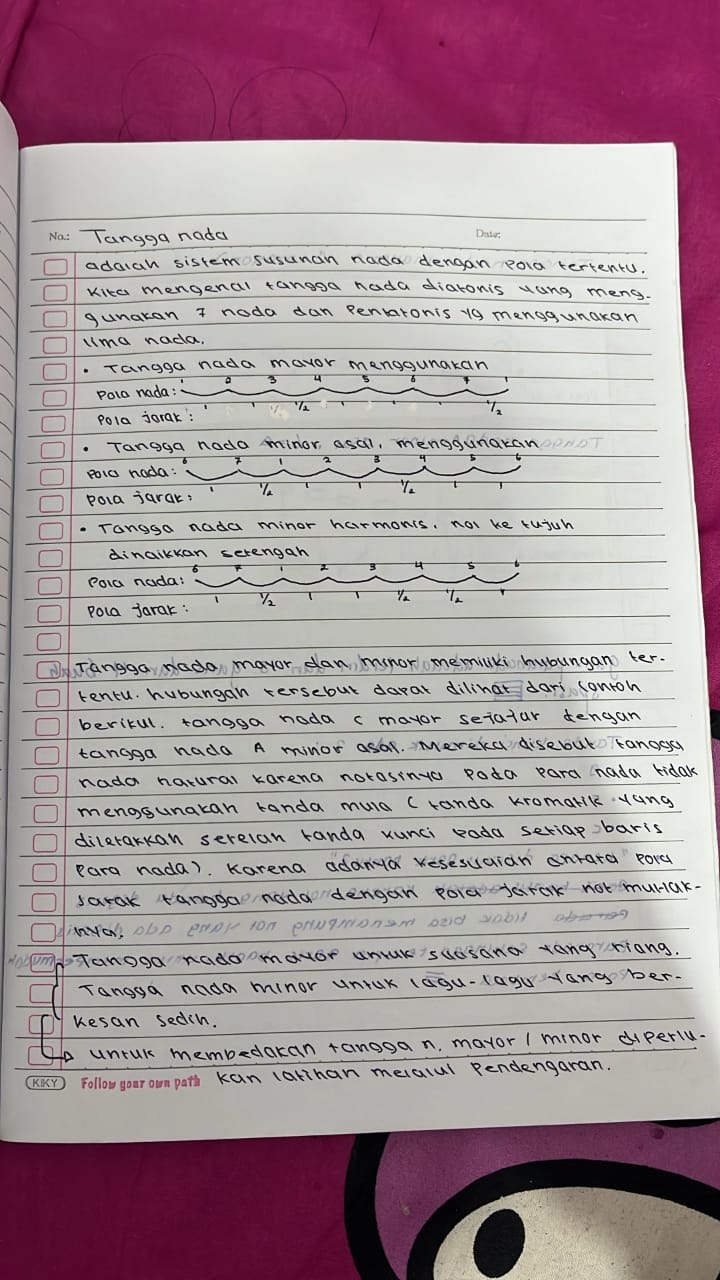 No.: Tangga nada Date:
adalah sistem susunan nada dengan pola tertentu.
Kita mengenal tangga nada diatonis yang meng-
gunakan 7 nada dan Pentatonis yg menggunakan
lima nada.
• Tangga nada mayor menggunakan
1 2 3 4 5 6 7 1
Pola nada:
Pola jarak: 1 1 ½ 1 1 1 ½
• Tangga nada minor asal, menggunakan
6 7 1 2 3 4 5 6
Pola nada:
Pola jarak: 1 ½ 1 1 ½ 1 1
• Tangga nada minor harmonis, not ke tujuh
dinaikkan setengah
6 7 1 2 3 4 5 6
Pola nada:
Pola jarak: 1 ½ 1 1 ½ ½
Tangga nada mayor dan minor memiliki hubungan ter-
tentu. hubungan tersebut dapat dilihat dari contoh
berikut. tangga nada C mayor sejajar dengan
tangga nada A minor asal. Mereka disebut Tangga
nada natural karena notasinya pada para nada tidak
menggunakan tanda mula (tanda kromatik yang
diletakkan setelah tanda kunci pada setiap baris
para nada). Karena adanya kesesuaian antara pola
jarak tangga nada dengan pola jarak not mutlak-
nya.
Tangga nada mayor untuk suasana yang riang.
Tangga nada minor untuk lagu-lagu yang ber-
kesan sedih.
untuk membedakan tangga n. mayor / minor diperlu-
KIKY Follow your own path kan latihan melalui Pendengaran.